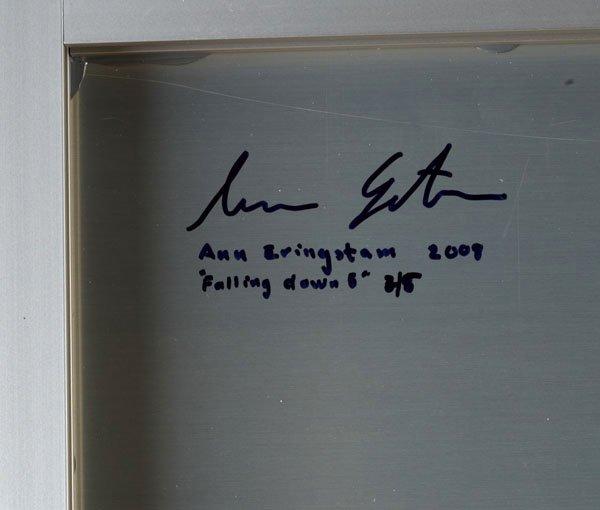 Ann Eringstam 2009
"Falling down 6" 3/5